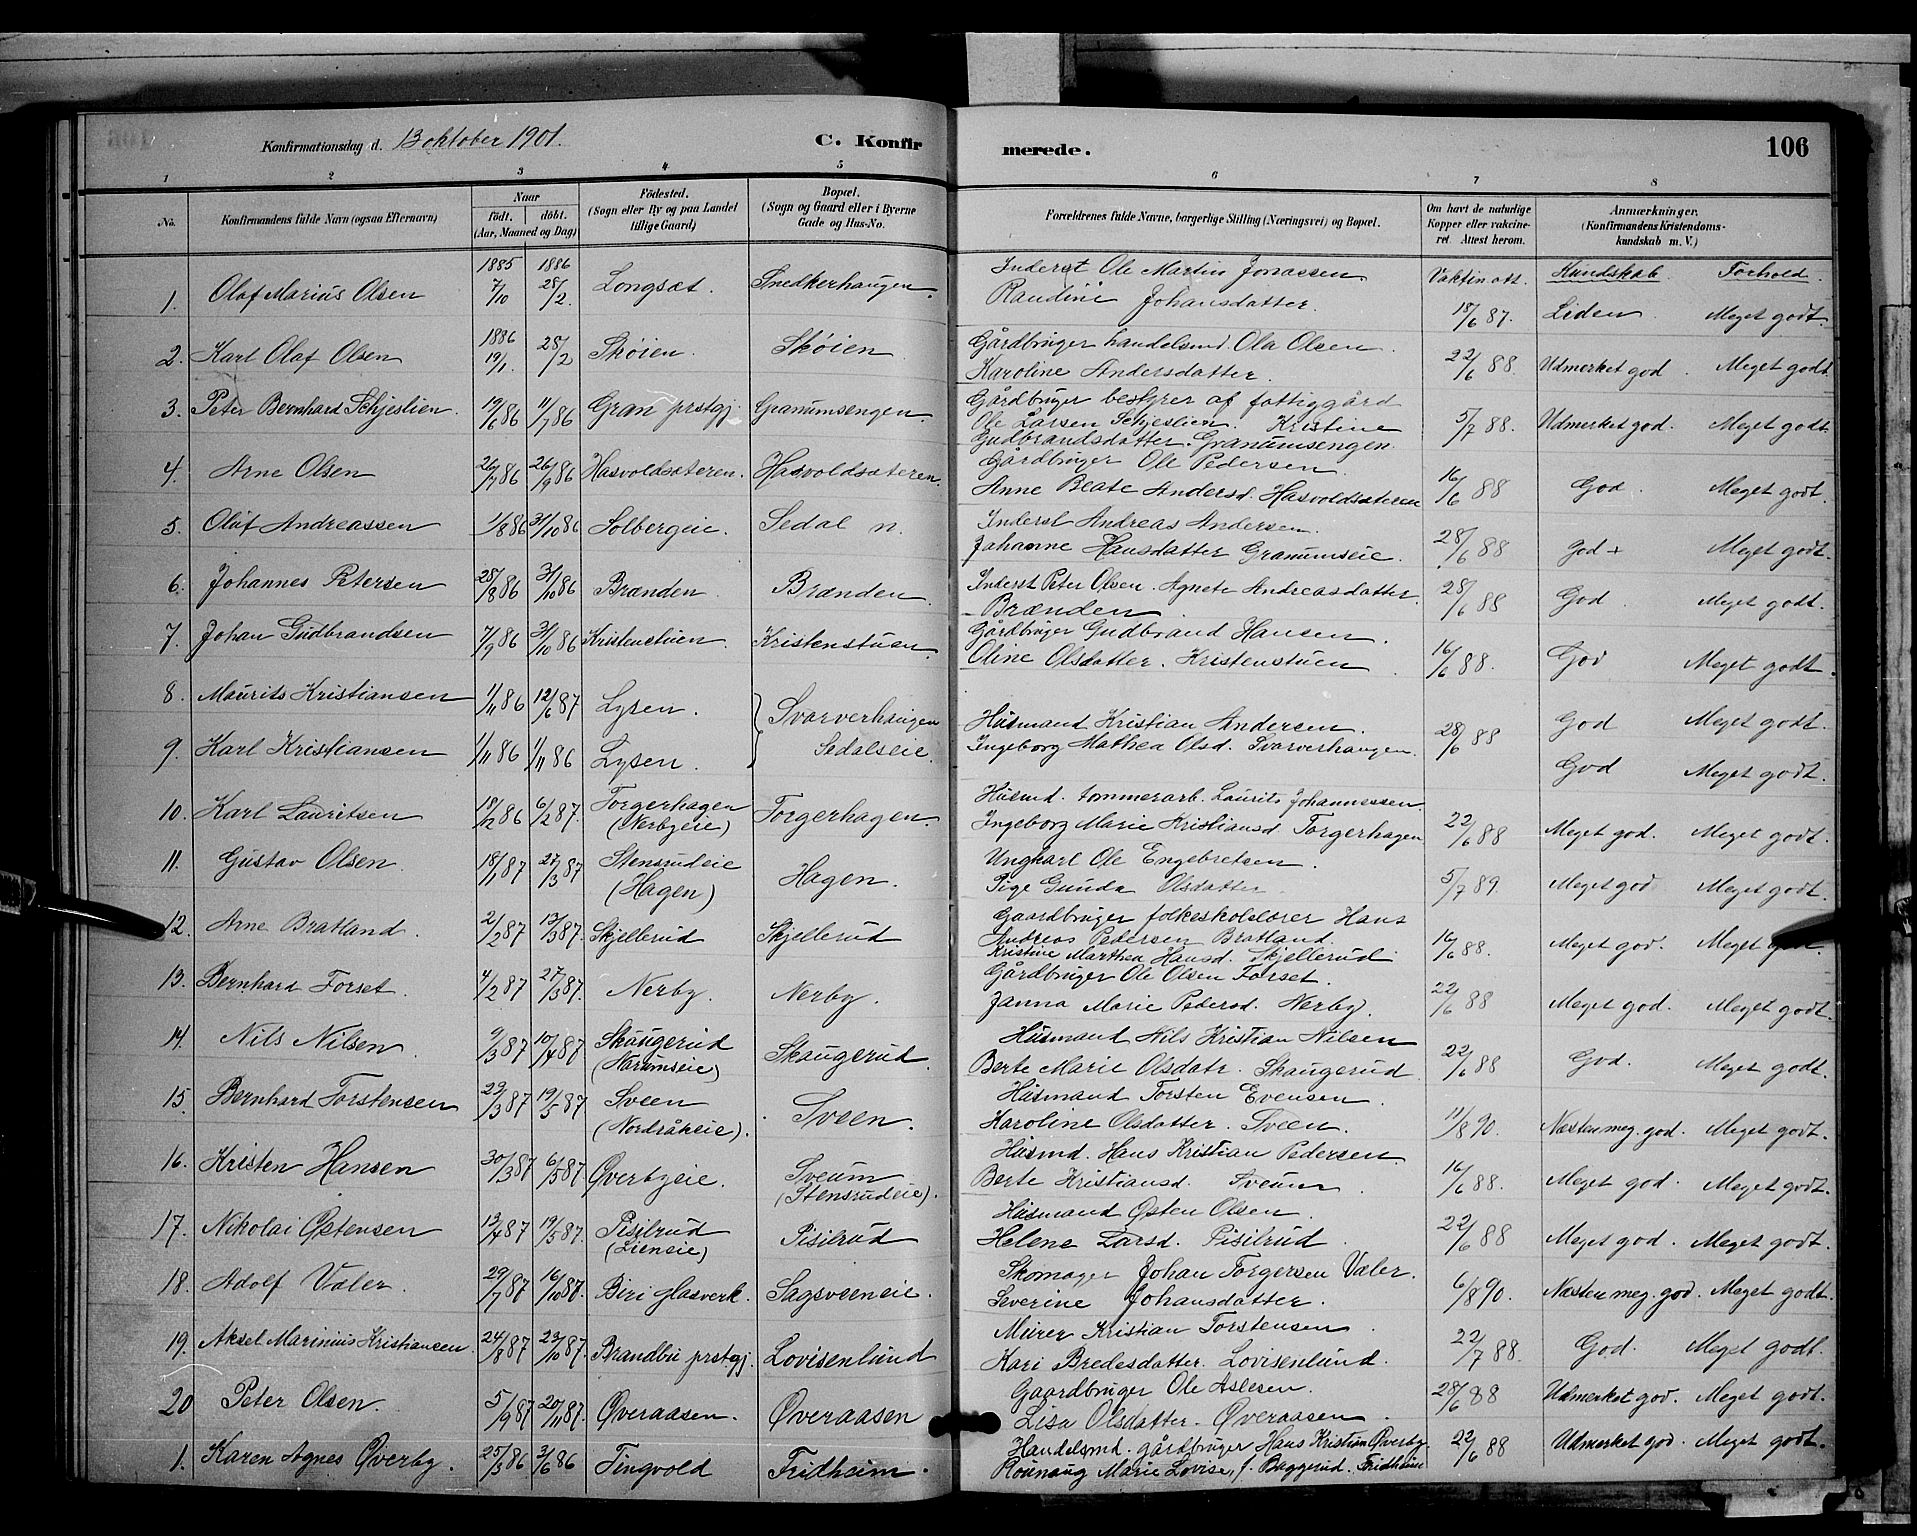 Konfirmationsdag d. 13 oktober 1901. C. Konfirmerede. 106
1 2 3 4 5 6 7 8
No. Konfirmandens fulde Navn (ogsaa Efternavn) Naar födt. döbt. (Aar, Maaned og Dag) Födested. (Sogn eller By og paa Landet tillige Gaard) Bopæl. (Sogn og Gaard eller i Byerne Gade og Hus-No. Forældrenes fulde Navne, borgerlige Stilling (Næringsvei) og Bopæl. Om havt de naturlige Kopper eller vakcineret. Attest herom. Anmærkninger. (Konfirmandens Kristendomskundskab m. V.)
Vakcin att. Kundskab. Forhold.
1. Olaf Marius Olsen 1885 7/10 1886 28/2. Longsæt. Snedkerhaugen. Inderst Ole Martin Jonassen 18/6 87. Liden Meget godt.
Randine Johansdatter.
2. Karl Olaf Olsen 1886 19/1. 28/2 Skøien. Skøien Gårdbruger handelsmd. Ola Olsen. 22/6 88. Udmerket god. Meget godt.
Karoline Andersdatter.
3. Peter Bernhard Schjeslien. 19/6 86 11/7 86 Gran prstgj. Granumsengen. Gårdbruger bestyrer af fattiggård 5/7 88. Udmerket god. Meget godt.
Ole Larsen Schjeslien. Kristine
Gudbrandsdatter. Granumsengen.
4. Arne Olsen 26/7 86 26/9 86 Hasvoldsæteren. Hasvoldsæteren. Gårdbruger Ole Pedersen 16/6 88 God. Meget godt.
Anne Beate Andersd. Hasvoldsæteren
5. Olaf Andreassen 1/8 86 31/10 86 Solbergeie. Sedal n. Inderst Andreas Andersen. 28/6 88 God + Meget godt.
Johanne Hansdatter Granumseie.
6. Johannes Petersen 28/8 86 31/10 86 Brænden. Brænden. Inderst Peter Olsen. Agnete Andreasdatter. 28/6 88 God. Meget godt.
Brænden
7. Johan Gudbrandsen 7/9 86 31/10 86 Kristenstuen. Kristenstuen. Gårdbruger Gudbrand Hansen. 16/6 88. God Meget godt.
Oline Olsdatter. Kristenstuen
8. Maurits Kristiansen 1/11 86 12/6 87 Lysen. Svarverhaugen Husmand Kristian Andersen. 28/6 88 God Meget godt.
9. Karl Kristiansen 1/11 86 1/11 86 Lysen. Sedalseie. Ingeborg Mathea Olsd. Svarverhaugen. God Meget godt.
10. Karl Lauritsen 18/12 86 6/2 87. Torgerhagen (Nerbyeie) Torgerhagen. Husmd. tømmerarb. Laurits Johannessen. 22/6 88 Meget god. Meget godt.
Ingeborg Marie Kristiansd Torgerhagen
11. Gustav Olsen 18/1 87 27/3 87 Stensrudeie (Hagen) Hagen. Ungkarl Ole Engebretsen. 5/7 89. Meget god Meget godt.
Pige Gunda Olsdatter
12. Arne Bratland. 2/2 87 13/3 87. Skjellerud Skjellerud Gaardbruger folkeskolelærer Hans 16/6 88. Meget god. Meget godt.
Andreas Pedersen Bratland.
Kristine Marthea Hansd. Skjellerud
13. Bernhard Forset. 4/2 87 27/3 87. Nerby. Nerby. Gårdbruger Ole Olsen Forset. 22/6 88 Meget god. Meget godt.
Janna Marie Pedersd. Nerby.
14. Nils Nilsen. 9/3 87 10/4 87 Skaugerud (Narumseie) Skaugerud. Husmand Nils Kristian Nilsen 22/6 88 God. Meget godt.
Berte Marie Olsdatr. Skaugerud
15. Bernhard Torstensen 22/3 87 19/5 87 Sveen (Nordråkeie). Sveen. Husmand Torsten Evensen. 11/8 90. Næsten meg. god. Meget godt.
Karoline Olsdatter. Sveen.
16. Kristen Hansen 30/3 87 6/5 87 Øverbyeie. Sveum (Stensrudeie). Husmd. Hans Kristian Pedersen. 16/6 88. Meget god. Meget godt.
Berte Kristiansd. Sveum.
17. Nikolai Østensen 13/4 87 19/5 87. Pisilrud (Lieneie) Pisilrud Husmand Østen Olsen. 22/6 88 Meget god. Meget godt.
Helene Larsd. Pisilrud.
18. Adolf Væler. 29/7 87 16/10 87. Biri glasverk. Sagsveeneie. Skomager Johan Torgersen Væler. 6/8 90. Næsten meg. god. Meget godt.
Severine Johansdatter.
19. Aksel Marinius Kristiansen. 24/8 87 23/10 87. Brandbu prstgj. Lovisenlund Murer Kristian Torstensen. 22/7 88. God. Meget godt.
Kari Bredesdatter. Lovisenlund.
20 Peter Olsen. 5/9 87 20/11 87. Øveraasen. Øveraasen Gaardbruger Ole Aslesen. 28/6 88 Udmerket god. Meget godt.
Lisa Olsdatter. Øveraasen.
1. Karen Agnes Øverby. 25/3 86 3/6 86 Tingvold Fridheim. Handelsmd. gårdbruger Hans Kristian Øverby. 22/6 88 Udmerket god. Meget godt.
Rønnaug Marie Lovise, f. Baggerud. Fridheim